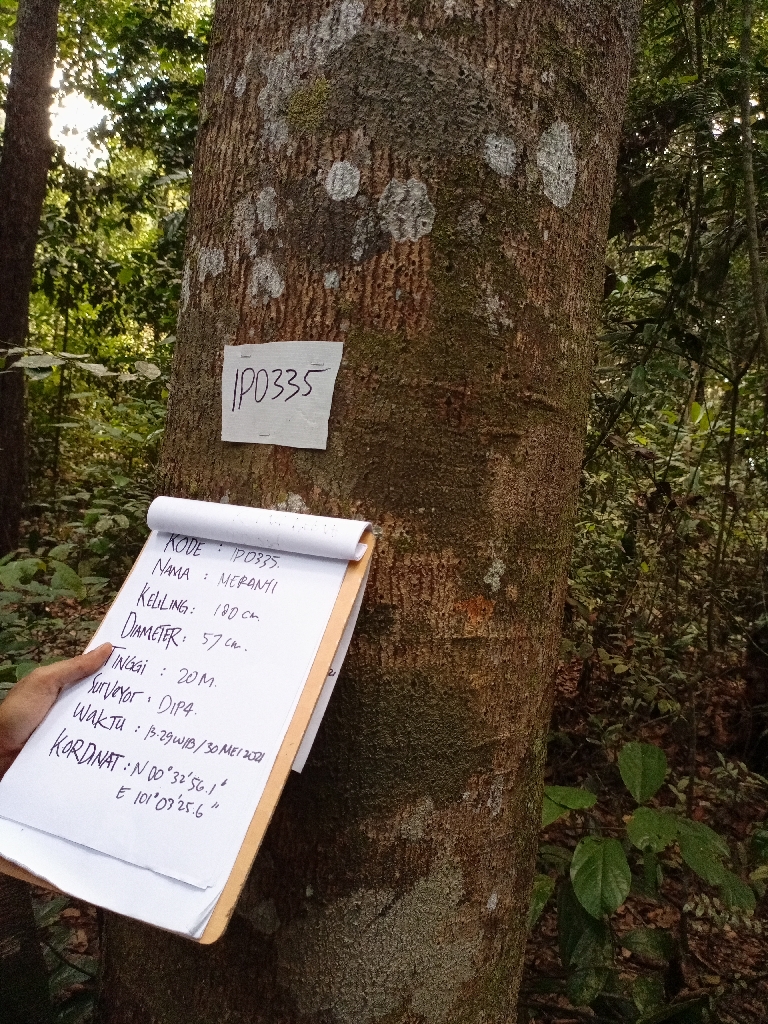 IP0335
KODE : IP0335.
NAMA : MERANTI
KELILING : 180 cm.
DIAMETER : 57 cm.
TINGGI : 20 M.
SURVEYOR : DIPA.
WAKTU : 13.29 WIB / 30 MEI 2021
KORDINAT : N 00° 32' 56.1"
E 101° 03' 25.6"